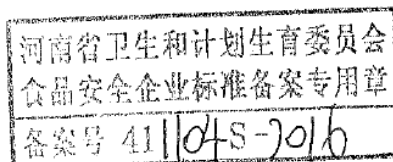 河南省卫生和计划生育委员会
食品安全企业标准备案专用章
备案号 411104S-2016